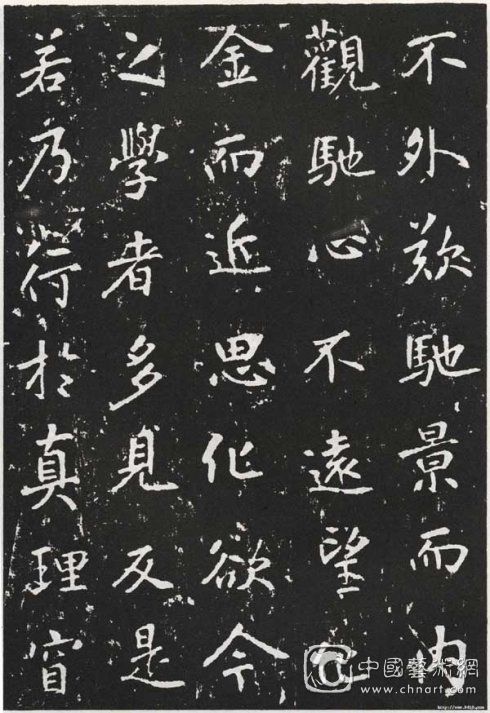 不外歎馳景而内
觀馳心不遠望化
金而近思化欲今
之學者多見反是
若乃行於真理窅
中國藝術網
www.chnart.com